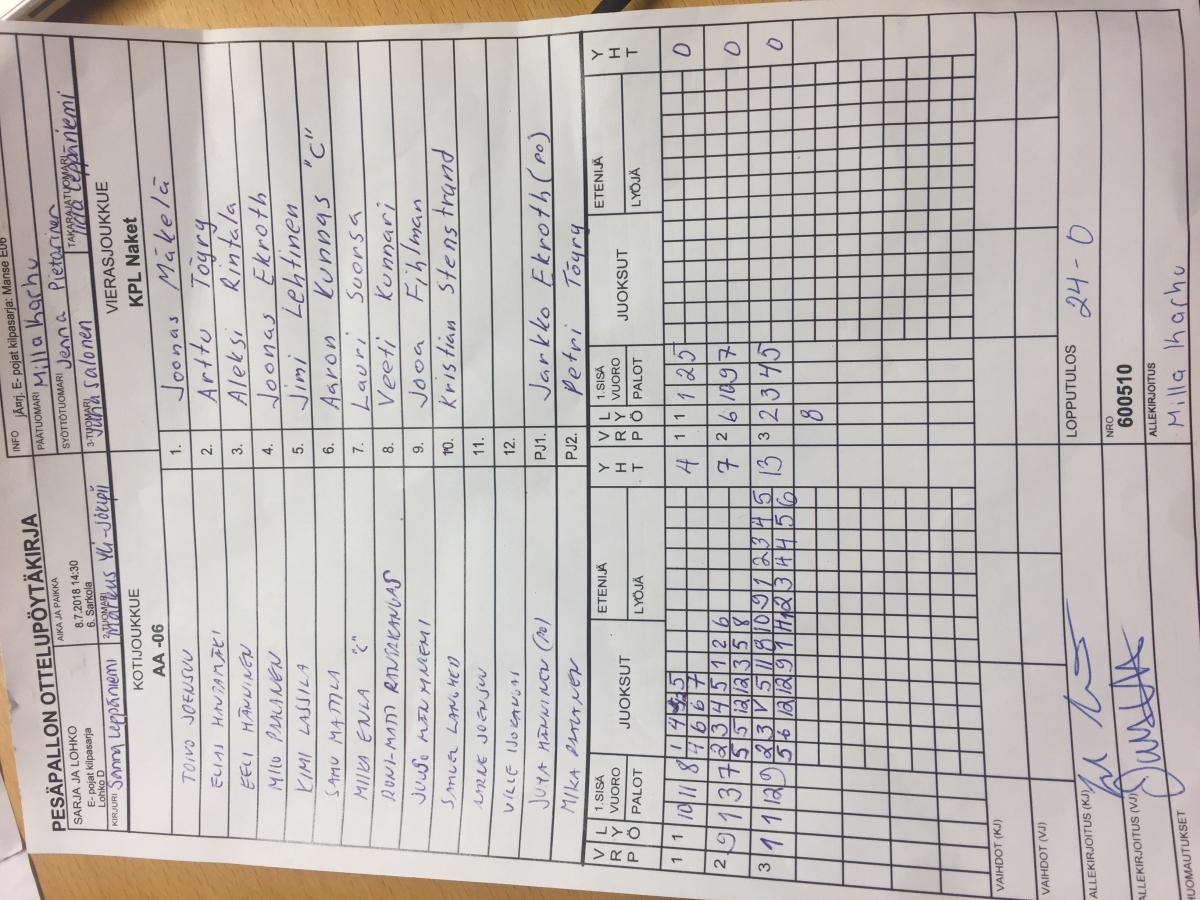 PESÄPALLON OTTELUPÖYTÄKIRJA
INFO jÄrj. E- pojat kilpasarja: Manse E06
SARJA JA LOHKO
E- pojat kilpasarja
Lohko D
AIKA JA PAIKKA
8.7.2018 14:30
6. Sarkola
PÄÄTUOMARI Milla Iharhu
SYÖTTÖTUOMARI Jenna Pietarinen
KIRJURI Sanna Leppäniemi
2-TUOMARI Markus Yli-Jokipii
3-TUOMARI Juha Salonen
TAKARAJATUOMARI Iida Leppäniemi
KOTIJOUKKUE
AA -06
VIERASJOUKKUE
KPL Naket
TOIVO JOENSUU 1. Joonas Mäkelä
ELIAS HAUTAMÄKI 2. Arttu Tögry
EELI MÄNNINEN 3. Aleksi Rintala
MILO PAANANEN 4. Joonas Ekroth
KIMI LASSILA 5. Jimi Lehtinen
SAMU MATTILA 6. Aaron Kunnas "C"
MIIKA ENLA "C" 7. Lauri Suonsa
RONI-MATTI 8. Veeti Kunnari
JUUSO MÄNTYNIEMI 9. Jooa Fihlman
SAMUEL 10. Kristian Stenstrand
JOENSUU 11.
VILLE 12.
JUHA MÄNNINEN (PO) PJ1. Jarko Ekroth (PO)
MIKA PJ2. Petri Tögry
V R P L Y Ö 1.SISÄ VUORO PALOT JUOKSUT ETENIJÄ LYÖJÄ Y H T V R P L Y Ö 1.SISÄ VUORO PALOT JUOKSUT ETENIJÄ LYÖJÄ Y H T
1 1 10 11 8 4 1 1 1 2 5 0
2 9 1 3 7 2 3 4 5 1 2 6 7 2 6 10 9 7 0
5 5 12 12 3 5 8
3 1 1 12 9 2 3 V 5 11 9 10 9 1 2 3 4 5 13 3 2 3 4 5 0
5 6 12 12 9 1 11 12 3 4 4 5 6 8
VAIHDOT (KJ)
VAIHDOT (VJ)
ALLEKIRJOITUS (KJ)
LOPPUTULOS 24 - 0
ALLEKIRJOITUS (VJ)
NRO
600510
HUOMAUTUKSET
ALLEKIRJOITUS
Milla Iharhu